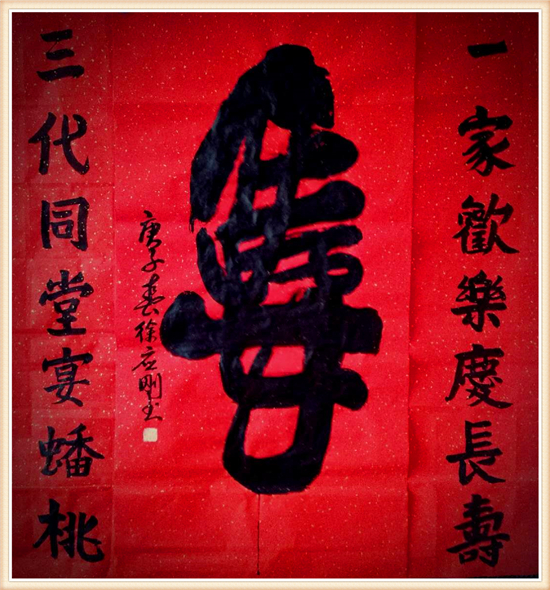 一家歡樂慶長壽
庚子春徐应刚书
三代同堂宴蟠桃